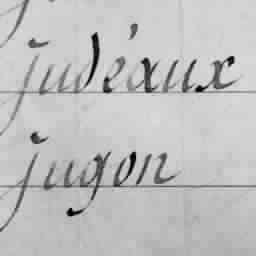 judéaux
jugon